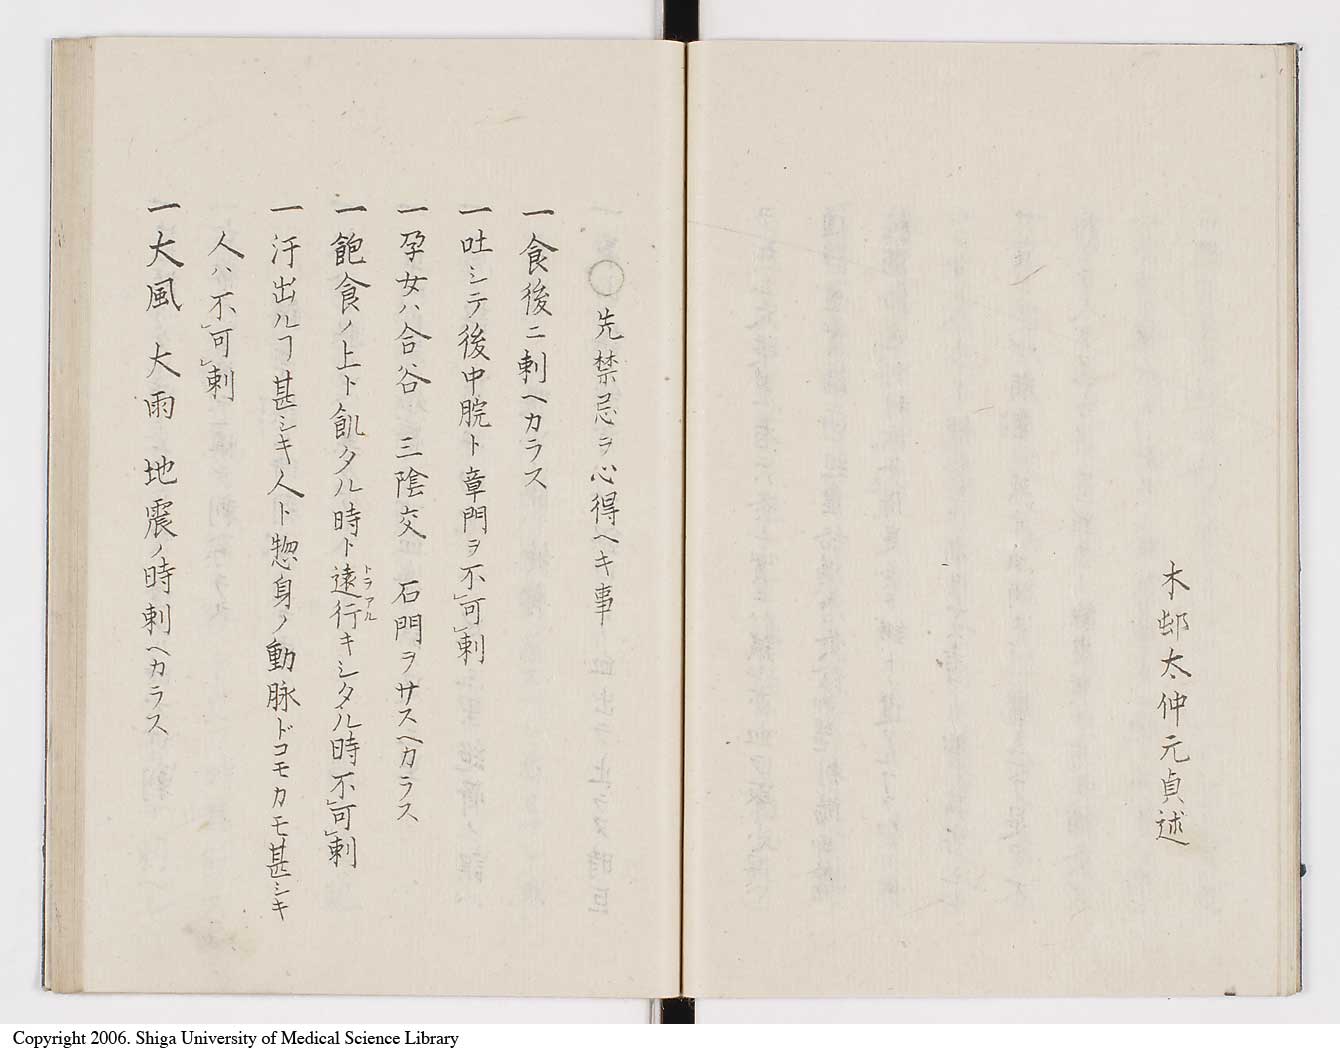 木邨太仲元貞述
○先禁忌ヲ心得ヘキ事
一食後ニ刺ヘカラス
一吐シテ後中脘ト章門ヲ不可刺
一孕女ハ合谷 三陰交 石門ヲサスヘカラス
一飽食ノ上ト飢タル時ト遠行キシタル時不可刺
トヲアル
一汗出ルヿ甚シキ人ト惣身ノ動脉ドコモカモ甚シキ
人ハ不可刺
一大風 大雨 地震ノ時刺ヘカラス
Copyright 2006. Shiga University of Medical Science Library